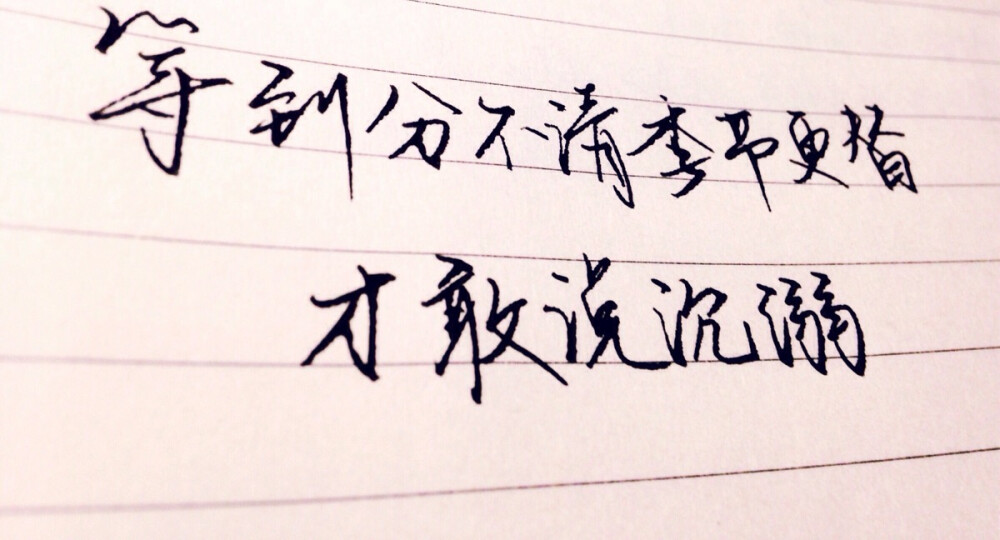 等到分不清季节更替
才敢说沉溺